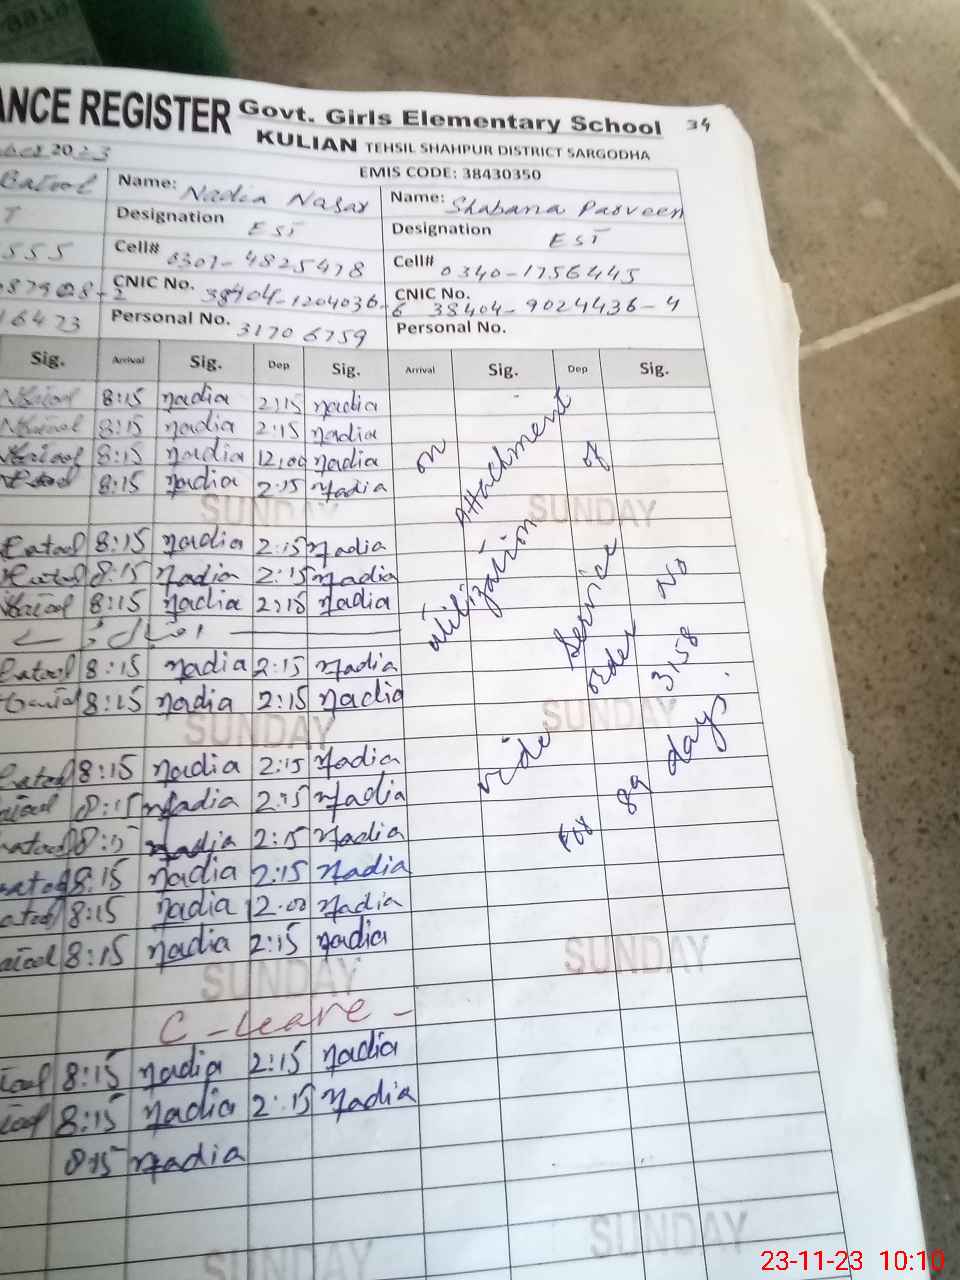 ANCE REGISTER Govt. Girls Elementary School 34
KULIAN TEHSIL SHAHPUR DISTRICT SARGODHA
2023 EMIS CODE: 38430350
Batool Name: Nadia Nasar Name: Shabana Parveen
T Designation EST Designation EST
555 Cell# 0301-4825478 Cell# 0340-1756445
87908-2 CNIC No. 38404-1204036-6 CNIC No. 38404-9024436-4
16473 Personal No. 31706759 Personal No.
Sig. Arrival Sig. Dep Sig. Arrival Sig. Dep Sig.
8:15 Nadia 2:15 Nadia
8:15 Nadia 2:15 Nadia
8:15 Nadia 12:00 Nadia
8:15 Nadia 2:15 Nadia
SUNDAY SUNDAY
Batool 8:15 Nadia 2:15 Nadia
8:15 Nadia 2:15 Nadia
8:15 Nadia 2:15 Nadia
Batool 8:15 Nadia 2:15 Nadia
8:15 Nadia 2:15 Nadia
SUNDAY SUNDAY
Batool 8:15 Nadia 2:15 Nadia
8:15 Nadia 2:15 Nadia
8:15 Nadia 2:15 Nadia
8:15 Nadia 2:15 Nadia
8:15 Nadia 12.00 Nadia
8:15 Nadia 2:15 Nadia
SUNDAY SUNDAY
C-Leave-
8:15 Nadia 2:15 Nadia
8:15 Nadia 2:15 Nadia
8:15 Nadia
SUNDAY SUNDAY
on Attachment of
utilization Service
vide order No 3158
for 89 days.
23-11-23 10:10